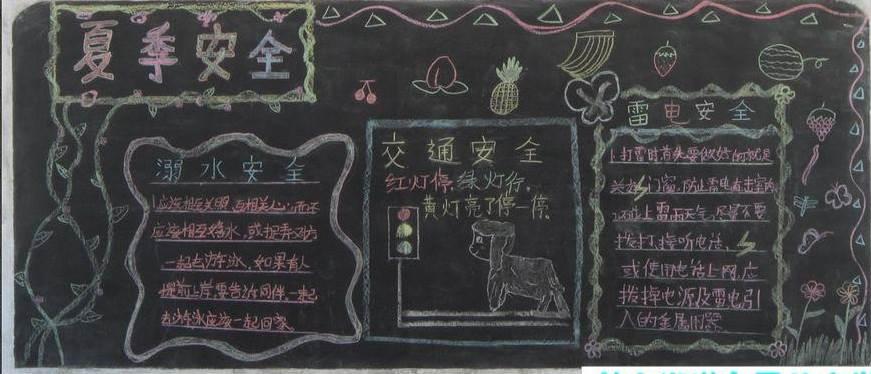 夏季安全
溺水安全
1.应该相互关照,互相关心,而不
应该相互泼水,或捉弄对方
一起去游泳,如果有人
提前上岸,要告诉同伴,一起
去游泳应该一起回家
交通安全
红灯停,绿灯行,
黄灯亮了停一停
雷电安全
1.打雷时首先要做好的就是
关好门窗,防止雷电直击室内
2.不要在雷雨天气,尽量不要
拨打接听电话,
或使用电话上网,应
拨掉电源及雷电引
入的金属